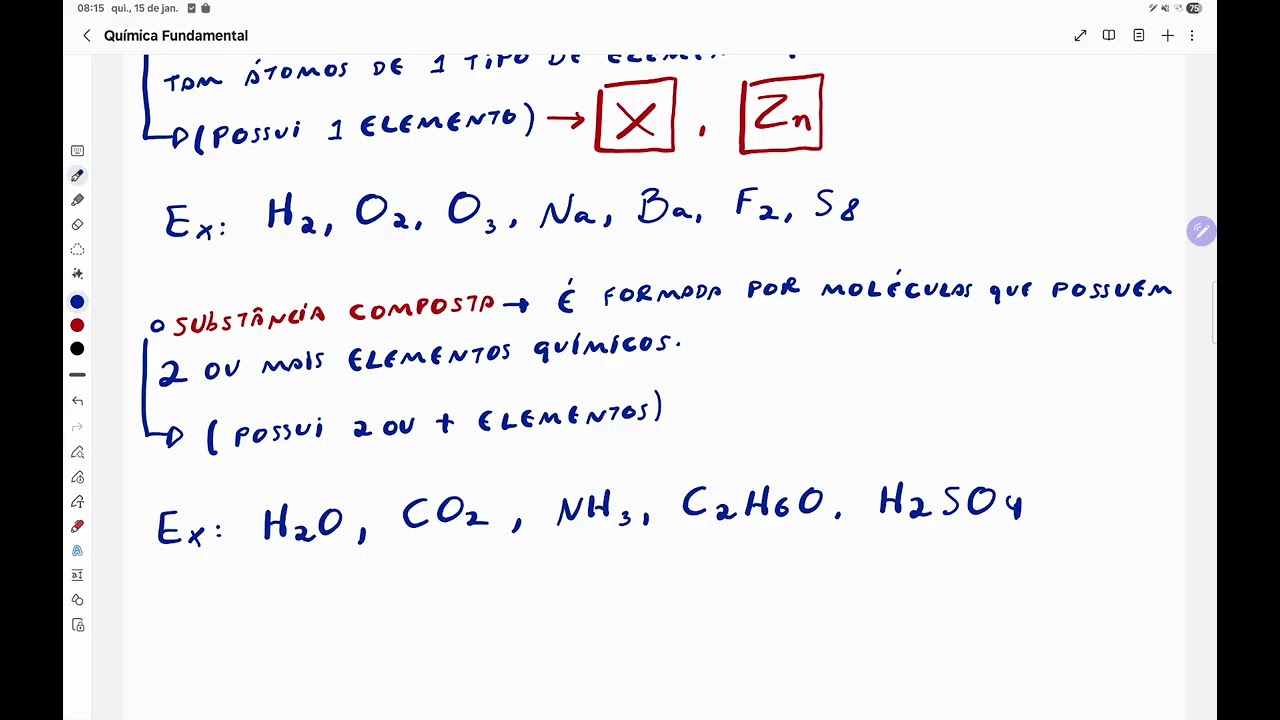 08:15 qui., 15 de jan. 75
Química Fundamental
TAM ÁTOMOS DE 1 TIPO DE
(POSSUI 1 ELEMENTO) → X , Zn
Ex: H2, O2, O3, Na, Ba, F2, S8
SUBSTÂNCIA COMPOSTA → É FORMADA POR MOLÉCULAS QUE POSSUEM
2 OU MAIS ELEMENTOS QUÍMICOS.
(POSSUI 2 OU + ELEMENTOS)
Ex: H2O, CO2, NH3, C2H6O, H2SO4